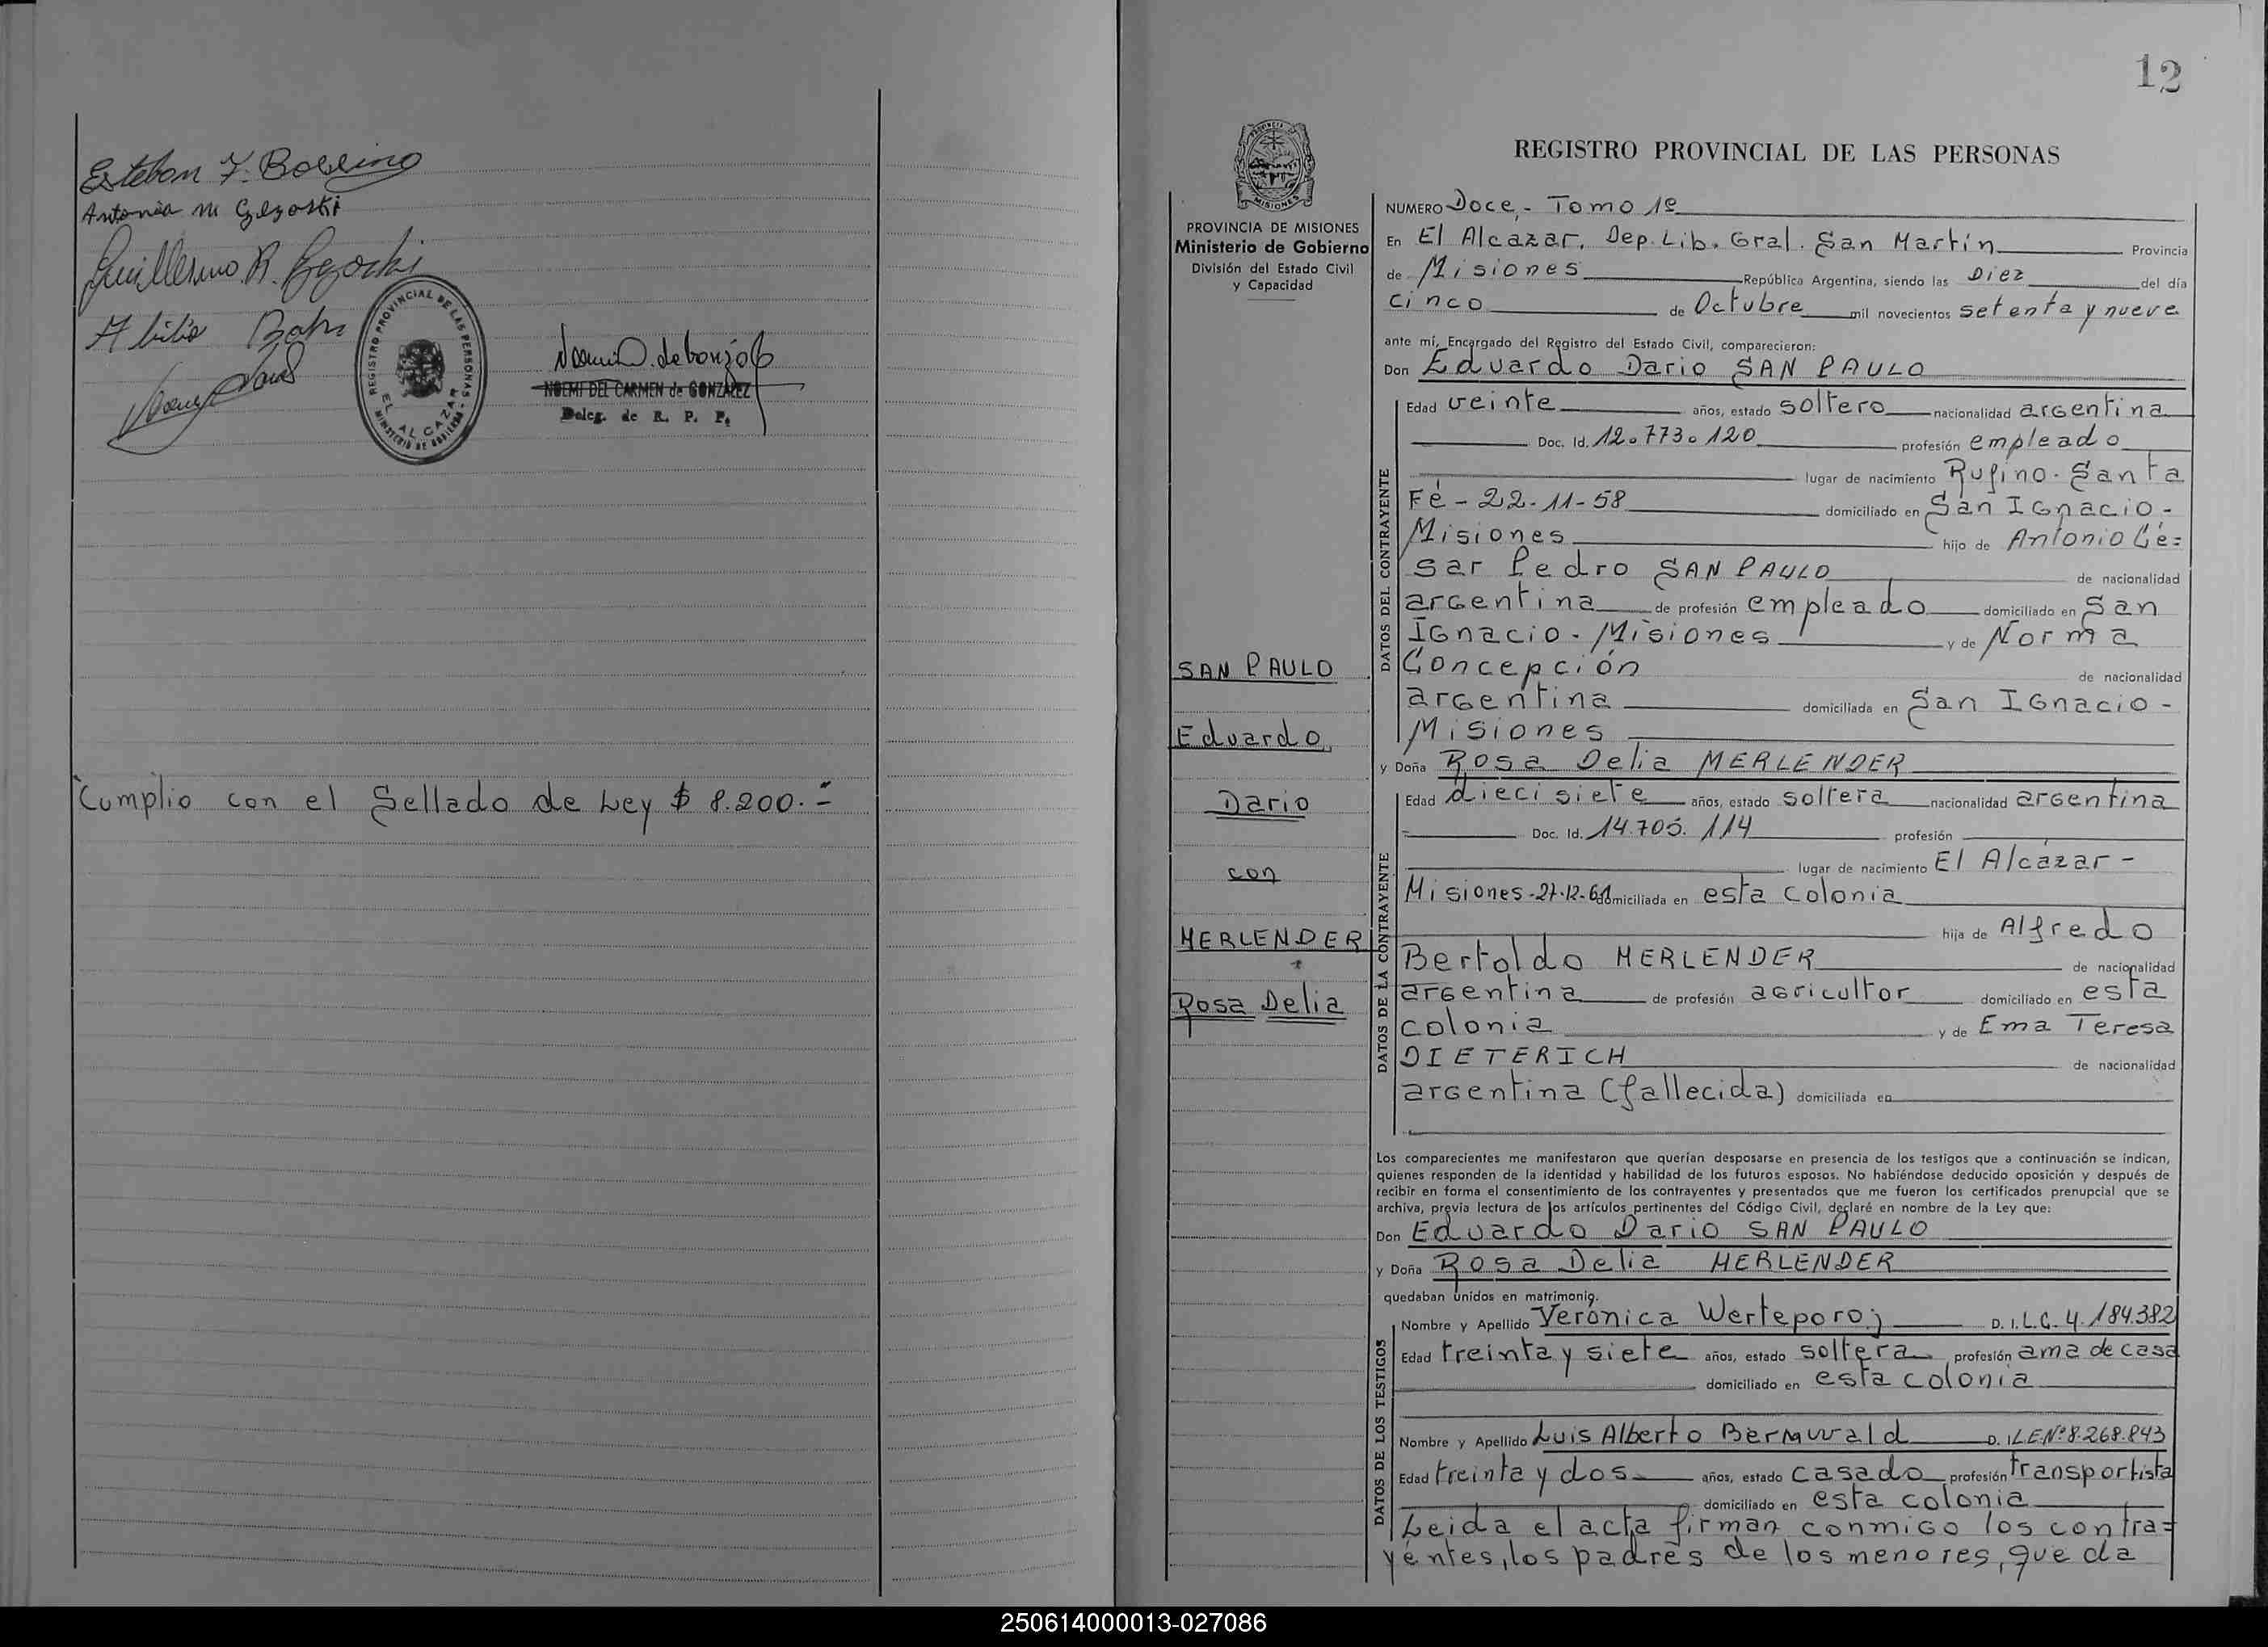 Esteban F. Bossino
Antonia M Gzgoski
Guillermo R. Gzgoski
REGISTRO PROVINCIAL DE LAS PERSONAS
EL ALCAZAR
MINISTERIO DE GOBIERNO
NOEMI DEL CARMEN de GONZALEZ
Deleg. de R. P. P.
Cumplio con el Sellado de Ley $ 8.200.-
12
PROVINCIA DE MISIONES
Ministerio de Gobierno
División del Estado Civil
y Capacidad
SAN PAULO
Eduardo
Dario
con
MERLENDER
Rosa Delia
REGISTRO PROVINCIAL DE LAS PERSONAS
NUMERO Doce.- Tomo 1º
En El Alcazar. Dep. Lib. Gral. San Martín Provincia
de Misiones República Argentina, siendo las Diez del día
cinco de Octubre mil novecientos setenta y nueve
ante mí, Encargado del Registro del Estado Civil, comparecieron:
Don Eduardo Dario SAN PAULO
DATOS DEL CONTRAYENTE
Edad veinte años, estado soltero nacionalidad argentina
Doc. Id. 12.773.120 profesión empleado
lugar de nacimiento Rufino - Santa
Fé - 22-11-58 domiciliado en San Ignacio -
Misiones hijo de Antonio Cé=
sar Pedro SAN PAULO de nacionalidad
argentina de profesión empleado domiciliado en San
Ignacio - Misiones y de Norma
Concepción de nacionalidad
argentina domiciliada en San Ignacio -
Misiones
y Doña Rosa Delia MERLENDER
DATOS DE LA CONTRAYENTE
Edad diecisiete años, estado soltera nacionalidad argentina
Doc. Id. 14.705.114 profesión
lugar de nacimiento El Alcázar -
Misiones - 27-12-61 domiciliada en esta colonia
hija de Alfredo
Bertoldo MERLENDER de nacionalidad
argentina de profesión agricultor domiciliado en esta
colonia y de Ema Teresa
DIETERICH de nacionalidad
argentina (fallecida) domiciliada en
Los comparecientes me manifestaron que querían desposarse en presencia de los testigos que a continuación se indican,
quienes responden de la identidad y habilidad de los futuros esposos. No habiéndose deducido oposición y después de
recibir en forma el consentimiento de los contrayentes y presentados que me fueron los certificados prenupcial que se
archiva, previa lectura de los artículos pertinentes del Código Civil, declaré en nombre de la Ley que:
Don Eduardo Dario SAN PAULO
y Doña Rosa Delia MERLENDER
quedaban unidos en matrimonio.
DATOS DE LOS TESTIGOS
Nombre y Apellido Verónica Werteporoj D. I. L.C. 4.184.382
Edad treinta y siete años, estado soltera profesión ama de casa
domiciliado en esta colonia
Nombre y Apellido Luis Alberto Bernuvald D. I. L.E.Nº 8.268.843
Edad treinta y dos años, estado casado profesión transportista
domiciliado en esta colonia
Leida el acta firman conmigo los contra=
yentes, los padres de los menores, que da
250614000013-027086